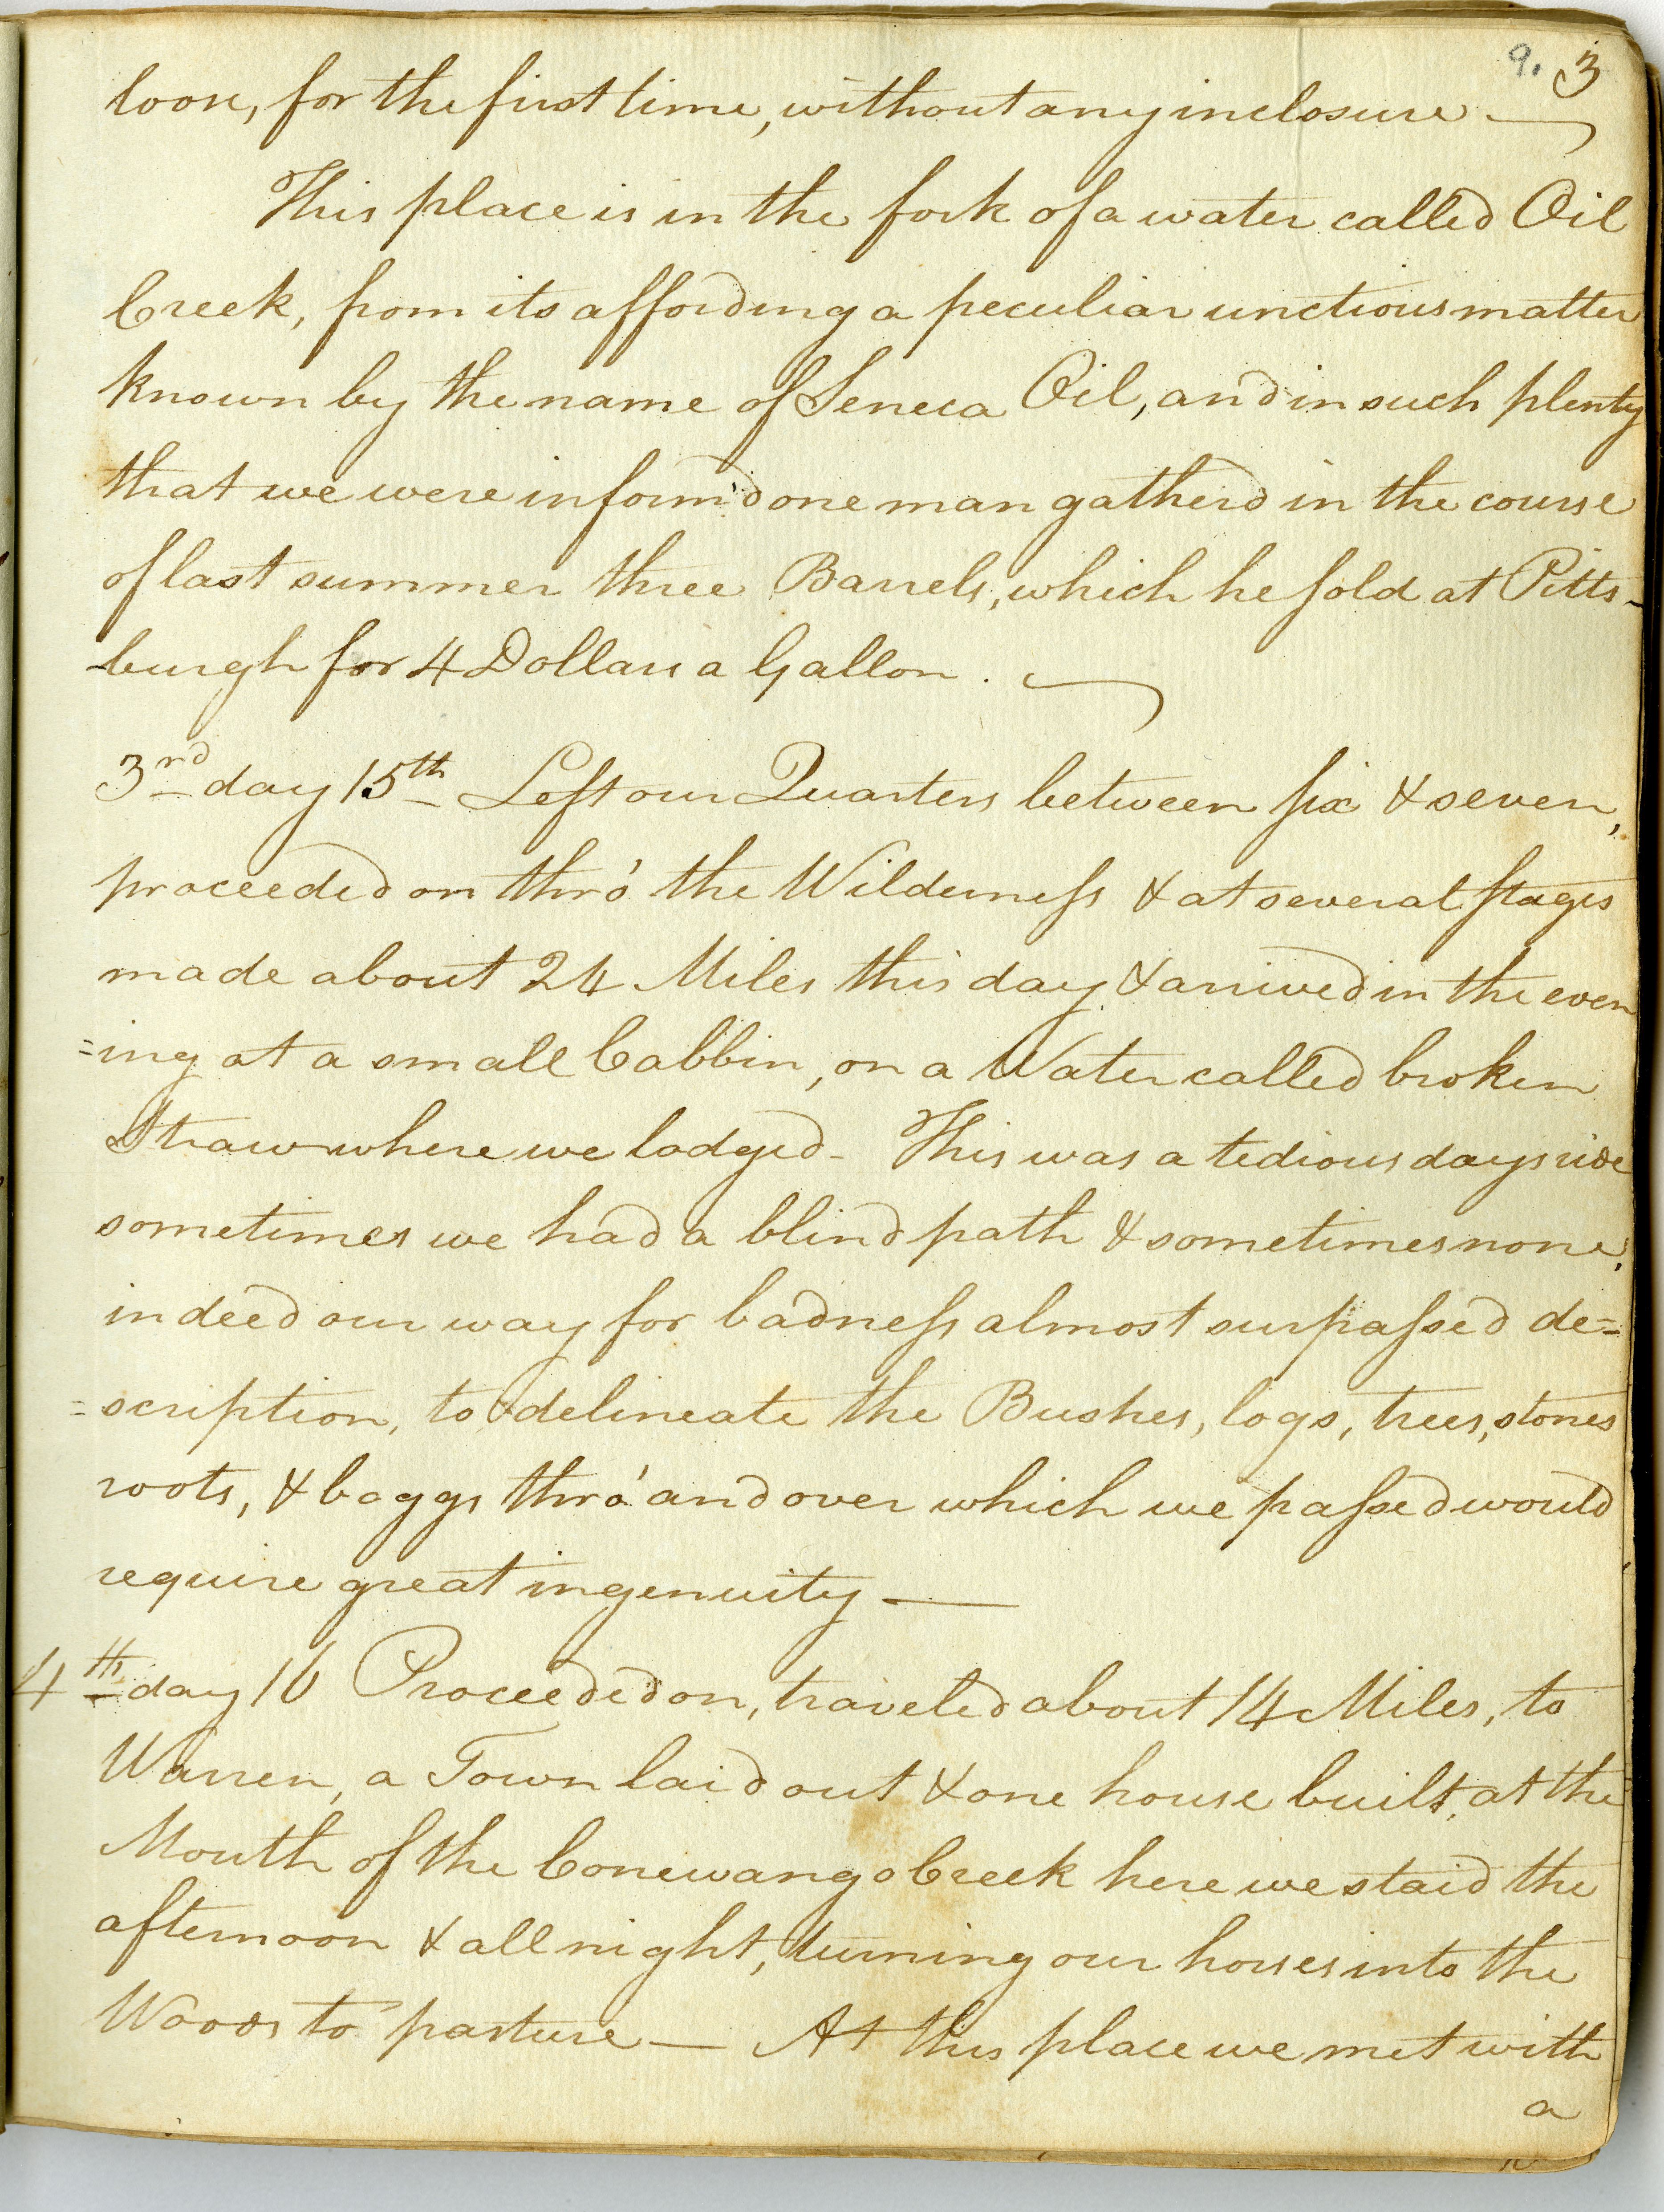 9. 3
loose, for the first time, without any inclosure —
This place is in the fork of a water called Oil
Creek, from its affording a peculiar unctious matter
known by the name of Seneca Oil, and in such plenty
that we were inform'd one man gatherd in the course
of last summer three Barrels, which he sold at Pitts-
burgh for 4 Dollars a Gallon. —
3rd day 15th Left our Quarters between six & seven,
proceeded on thro' the Wilderness & at several stages
made about 24 Miles this day & arrived in the even
=ing at a small Cabbin, on a Water called broken
Straw where we lodged - This was a tedious days ride
sometimes we had a blind path & sometimes none,
indeed our way for badness almost surpassed de=
=scription, to delineate the Bushes, logs, trees, stones
roots, & boggs thro' and over which we passed would
require great ingenuity —
4th day 16 Proceeded on, traveled about 14 Miles, to
Warren, a Town laid out & one house built, at the
Mouth of the Conewango Creek here we staid the
afternoon & all night, turning our horses into the
Woods to pasture — At this place we met with
a